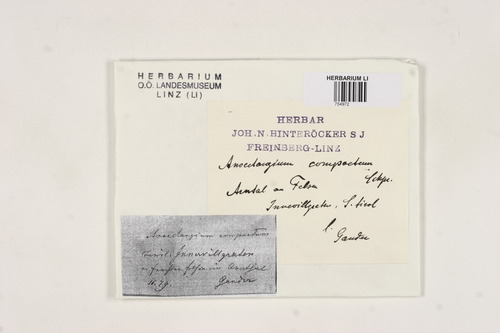 HERBARIUM
O.Ö. LANDESMUSEUM
LINZ (LI)
HERBARIUM LI
HERBAR
JOH. N. HINTERÖCKER S J
FREINBERG-LINZ
Anoectangium compactum
Schpr.
Arntal an Felsen
Innervillgraten, S. tirol
l. Gander
Anoectangium compactum
Tirol. Innervillgraten
Gander